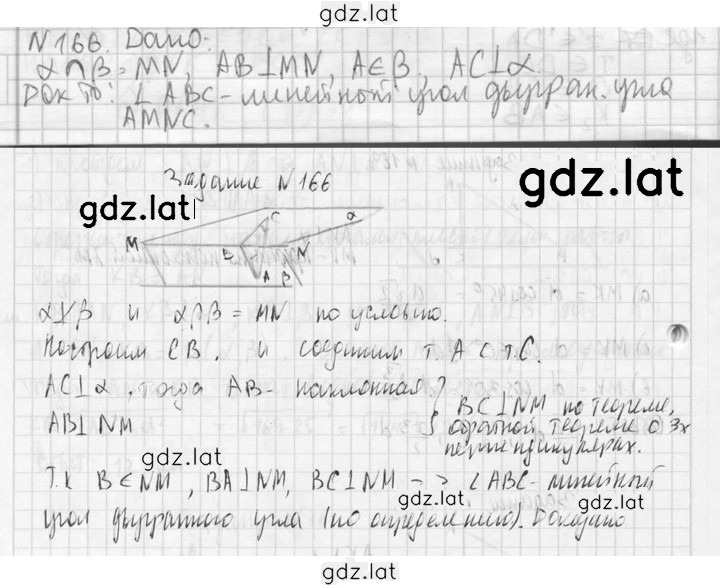 gdz.lat
N166. Дано:
α∩β=MN, AB⊥MN, A∈β, AC⊥α.
Док-ть: ∠ABC - линейный угол двугран. угла
AMNC.
gdz.lat
Задание N166
gdz.lat
C α
M B N
A β
α⊻β и α∩β = MN по условию.
Построим CB, и соединим т. A с т. C.
AC⊥α, тогда AB - наклонная
AB⊥NM
BC⊥NM по теореме,
обратной теореме о 3х
перпендикулярах.
gdz.lat
gdz.lat
Т.к B∈NM, BA⊥NM, BC⊥NM -> ∠ABC - линейный
gdz.lat
gdz.lat
угол двугранного угла (по определению). Доказано
gdz.lat